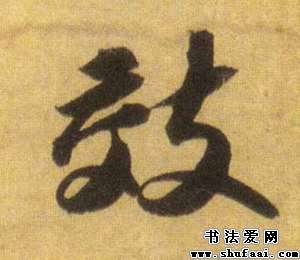 效
书法爱网
www.shufaai.com